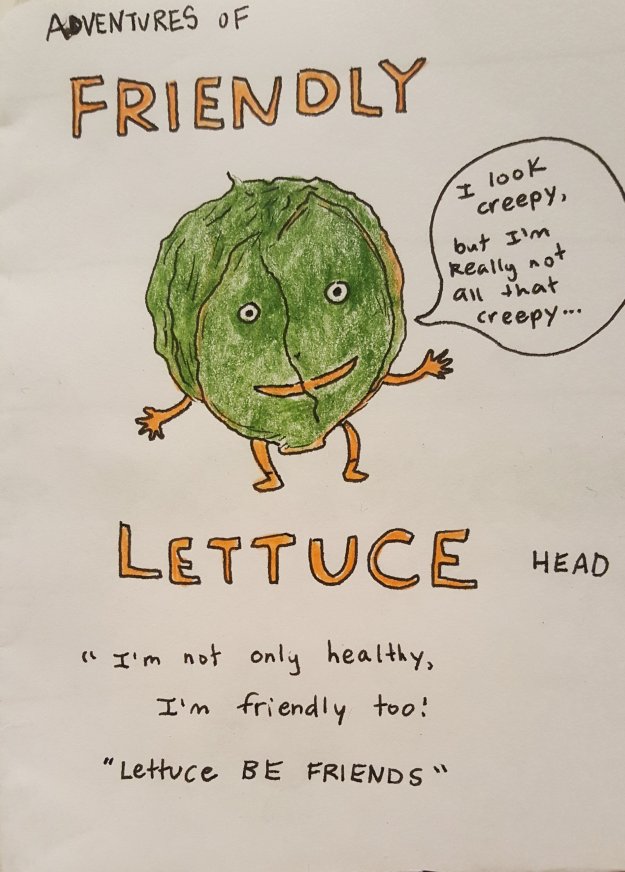 ADVENTURES OF
FRIENDLY
I look
creepy,
but I'm
Really not
all that
creepy...
LETTUCE HEAD
"I'm not only healthy,
I'm friendly too!
"Lettuce BE FRIENDS"